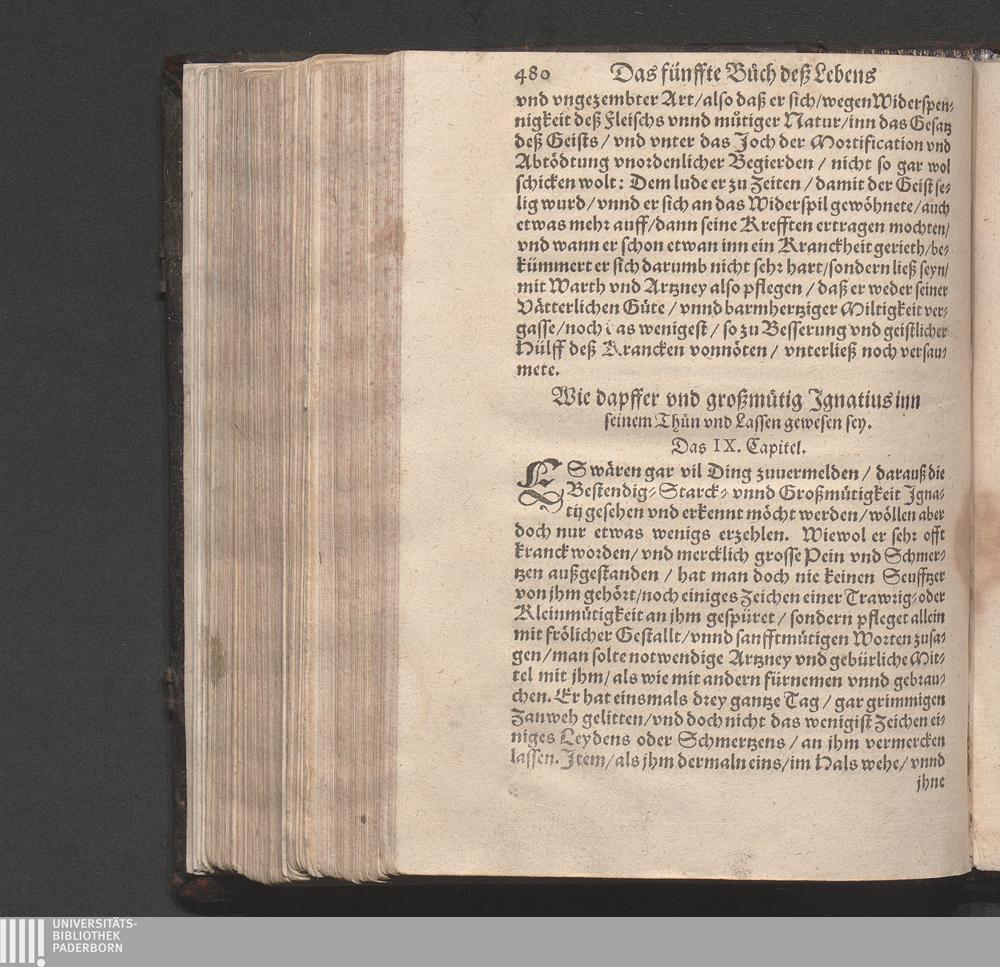 480 Das fünffte Bůch deß Lebens
vnd vngezembter Art/also daß er sich/wegen Widerspen⸗
nigkeit deß Fleischs vnnd můtiger Natur/inn das Gesatz
deß Geists/ vnd vnter das Joch der Mortification vnd
Abtödtung vnordenlicher Begierden / nicht so gar wol
schicken wolt: Dem lude er zu Zeiten / damit der Geist se⸗
lig wurd/ vnnd er sich an das Widerspil gewöhnete/auch
etwas mehr auff/dann seine Krefften ertragen mochten/
vnd wann er schon etwan inn ein Kranckheit gerieth/be⸗
kümmert er sich darumb nicht sehr hart/sondern ließ seyn/
mit Warth vnd Artzney also pflegen / daß er weder seiner
Vätterlichen Güte / vnnd barmhertziger Miltigkeit ver⸗
gasse/noch das wenigest/ so zu Besserung vnd geistlicher
Hülff deß Krancken vonnöten/ vnterließ noch versau⸗
mete.
Wie dapffer vnd großmütig Ignatius inn
seinem Thůn vnd Lassen gewesen sey.
Das IX. Capitel.
ES wären gar vil Ding zuuermelden / darauß die
Bestendig⸗ Starck⸗ vnnd Großmütigkeit Igna⸗
tij gesehen vnd erkennt möcht werden/ wöllen aber
doch nur etwas wenigs erzehlen. Wiewol er sehr offt
kranck worden/ vnd mercklich grosse Pein vnd Schmer⸗
tzen außgestanden / hat man doch nie keinen Seufftzer
von jhm gehört/noch einiges Zeichen einer Trawrig⸗oder
Kleinmütigkeit an jhm gespüret/ sondern pfleget allein
mit frölicher Gestallt/vnnd sanfftmütigen Worten zusa⸗
gen/man solte notwendige Artzney vnd gebürliche Mit⸗
tel mit jhm/ als wie mit andern fürnemen vnnd gebrau⸗
chen. Er hat einsmals drey gantze Tag/ gar grimmigen
Zanweh gelitten/vnd doch nicht das wenigist Zeichen ei⸗
niges Leydens oder Schmertzens / an jhm vermercken
lassen. Item/als jhm dermaln eins/im Hals wehe/ vnnd
jhne
UNIVERSITÄTS-
BIBLIOTHEK
PADERBORN